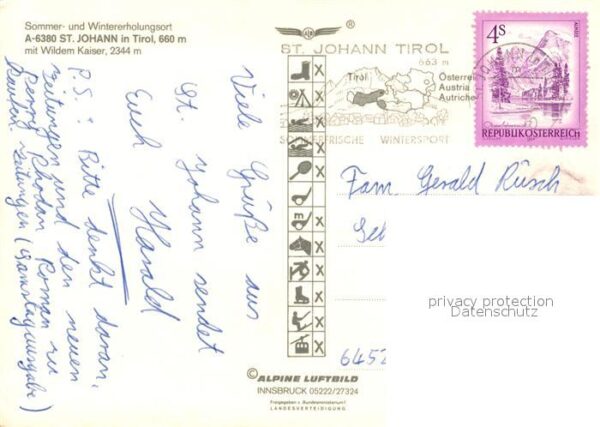 Sommer- und Wintererholungsort
A-6380 ST. JOHANN in Tirol, 660 m
mit Wildem Kaiser, 2344 m
Viele Grüße aus
St. Johann sendet
Euch
Harald
P.S.: Bitte denkt daran,
Zeitungen und den neuen
Perry Rhodan Roman zu
kaufen. Zeitungen (Samstagausgabe)
®
ST. JOHANN TIROL
663 m
Tirol
Österreich
Austria
Autriche
WINTERSPORT
4S
REPUBLIK ÖSTERREICH
Fam. Gerald Rüsch
6452
privacy protection
Datenschutz
© ALPINE LUFTBILD
INNSBRUCK 05222/27324
Freigegeben v. Bundesministerium f.
LANDESVERTEIDIGUNG